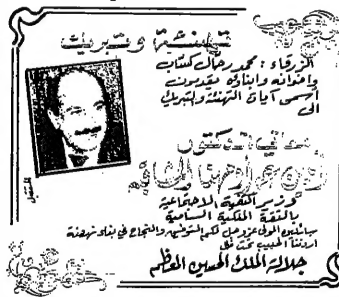 تهنئة وتبريك
الزرقاء : محمد رحال كساب
واخوانه وابناؤه يقدمون
أسمى آيات التهنئة والتبريك
الى
معالي الدكتور
لتنمية الاجتماعية
بالثقة الملكية السامية
سائلين المولى عز وجل لكم التوفيق والنجاح في بناء نهضة
اردننا الحبيب تحت ظل
جلالة الملك الحسين المعظم